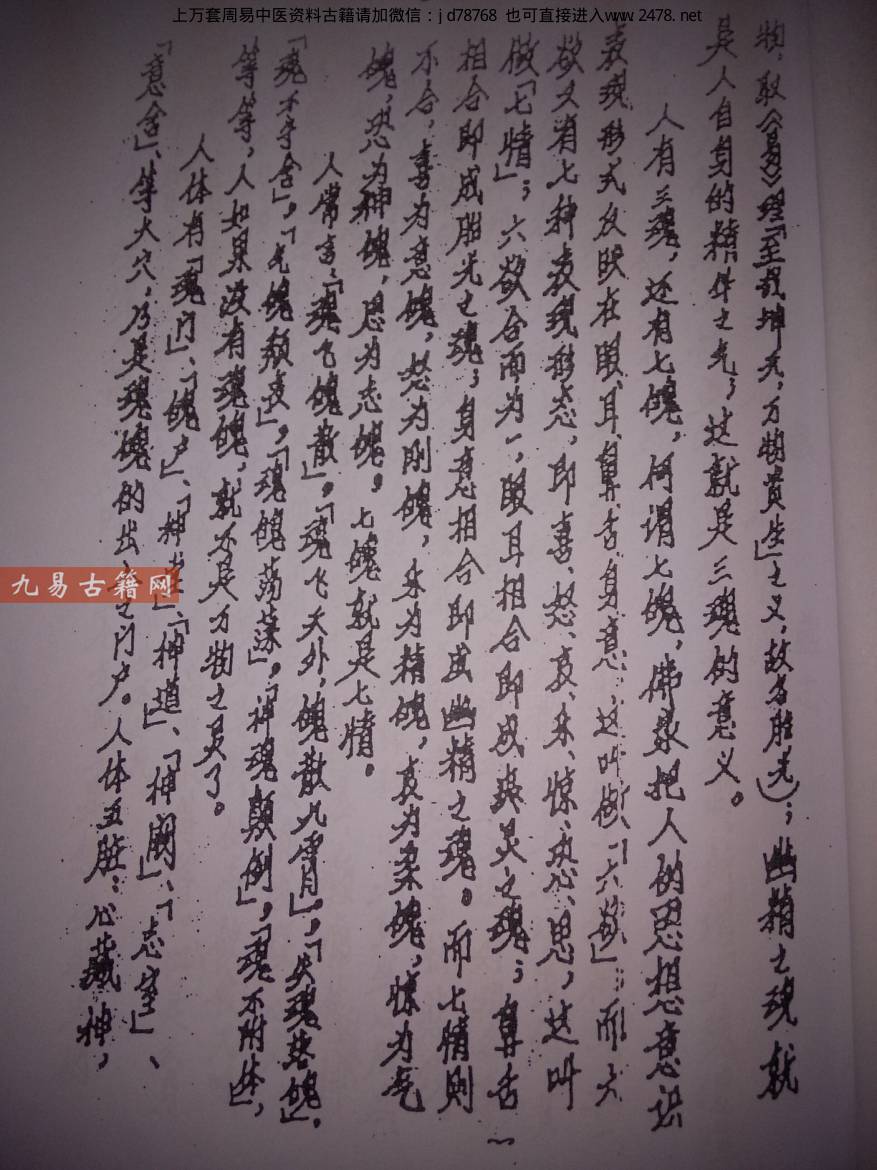 上万套周易中医资料古籍请加微信：jd78768 也可直接进入www.2478.net
物，取《易》理「至哉坤元，万物资生」之义，故名胎光）；幽精之魂就
是人自身的精件之气；这就是三魂的意义。
人有三魂，还有七魄，何谓七魄，佛家把人的思想意识
表现形式反映在眼、耳、鼻、舌、身、意，这叫做「六欲」；而六
欲又有七种表现形态，即喜、怒、哀、乐、惊、恐、思，这叫
做「七情」；六欲合而为一，眼耳相合即成爽灵之魂；鼻舌
相合即成胎光之魂；身意相合即成幽精之魂。而七情则
不合，喜为意魄，怒为刚魄，乐为精魄，哀为柔魄，惊为气
魄，恐为神魄，思为志魄。七魄就是七情。
人常言，「魂飞魄散」。「魂飞天外，魄散九霄」。「失魂落魄」。
「魂不守舍」。「气魄颓丧」。「魂魄荡荡」。「神魂颠倒」。「魂不附体」，
等等，人如果没有魂魄，就不是万物之灵了。
人体有「魂门」、「魄户」、「神堂」、「神道」、「神阙」、「志室」、
「意舍」、等大穴，乃是魂魄的出之门户。人体五脏：心藏神，
九易古籍网